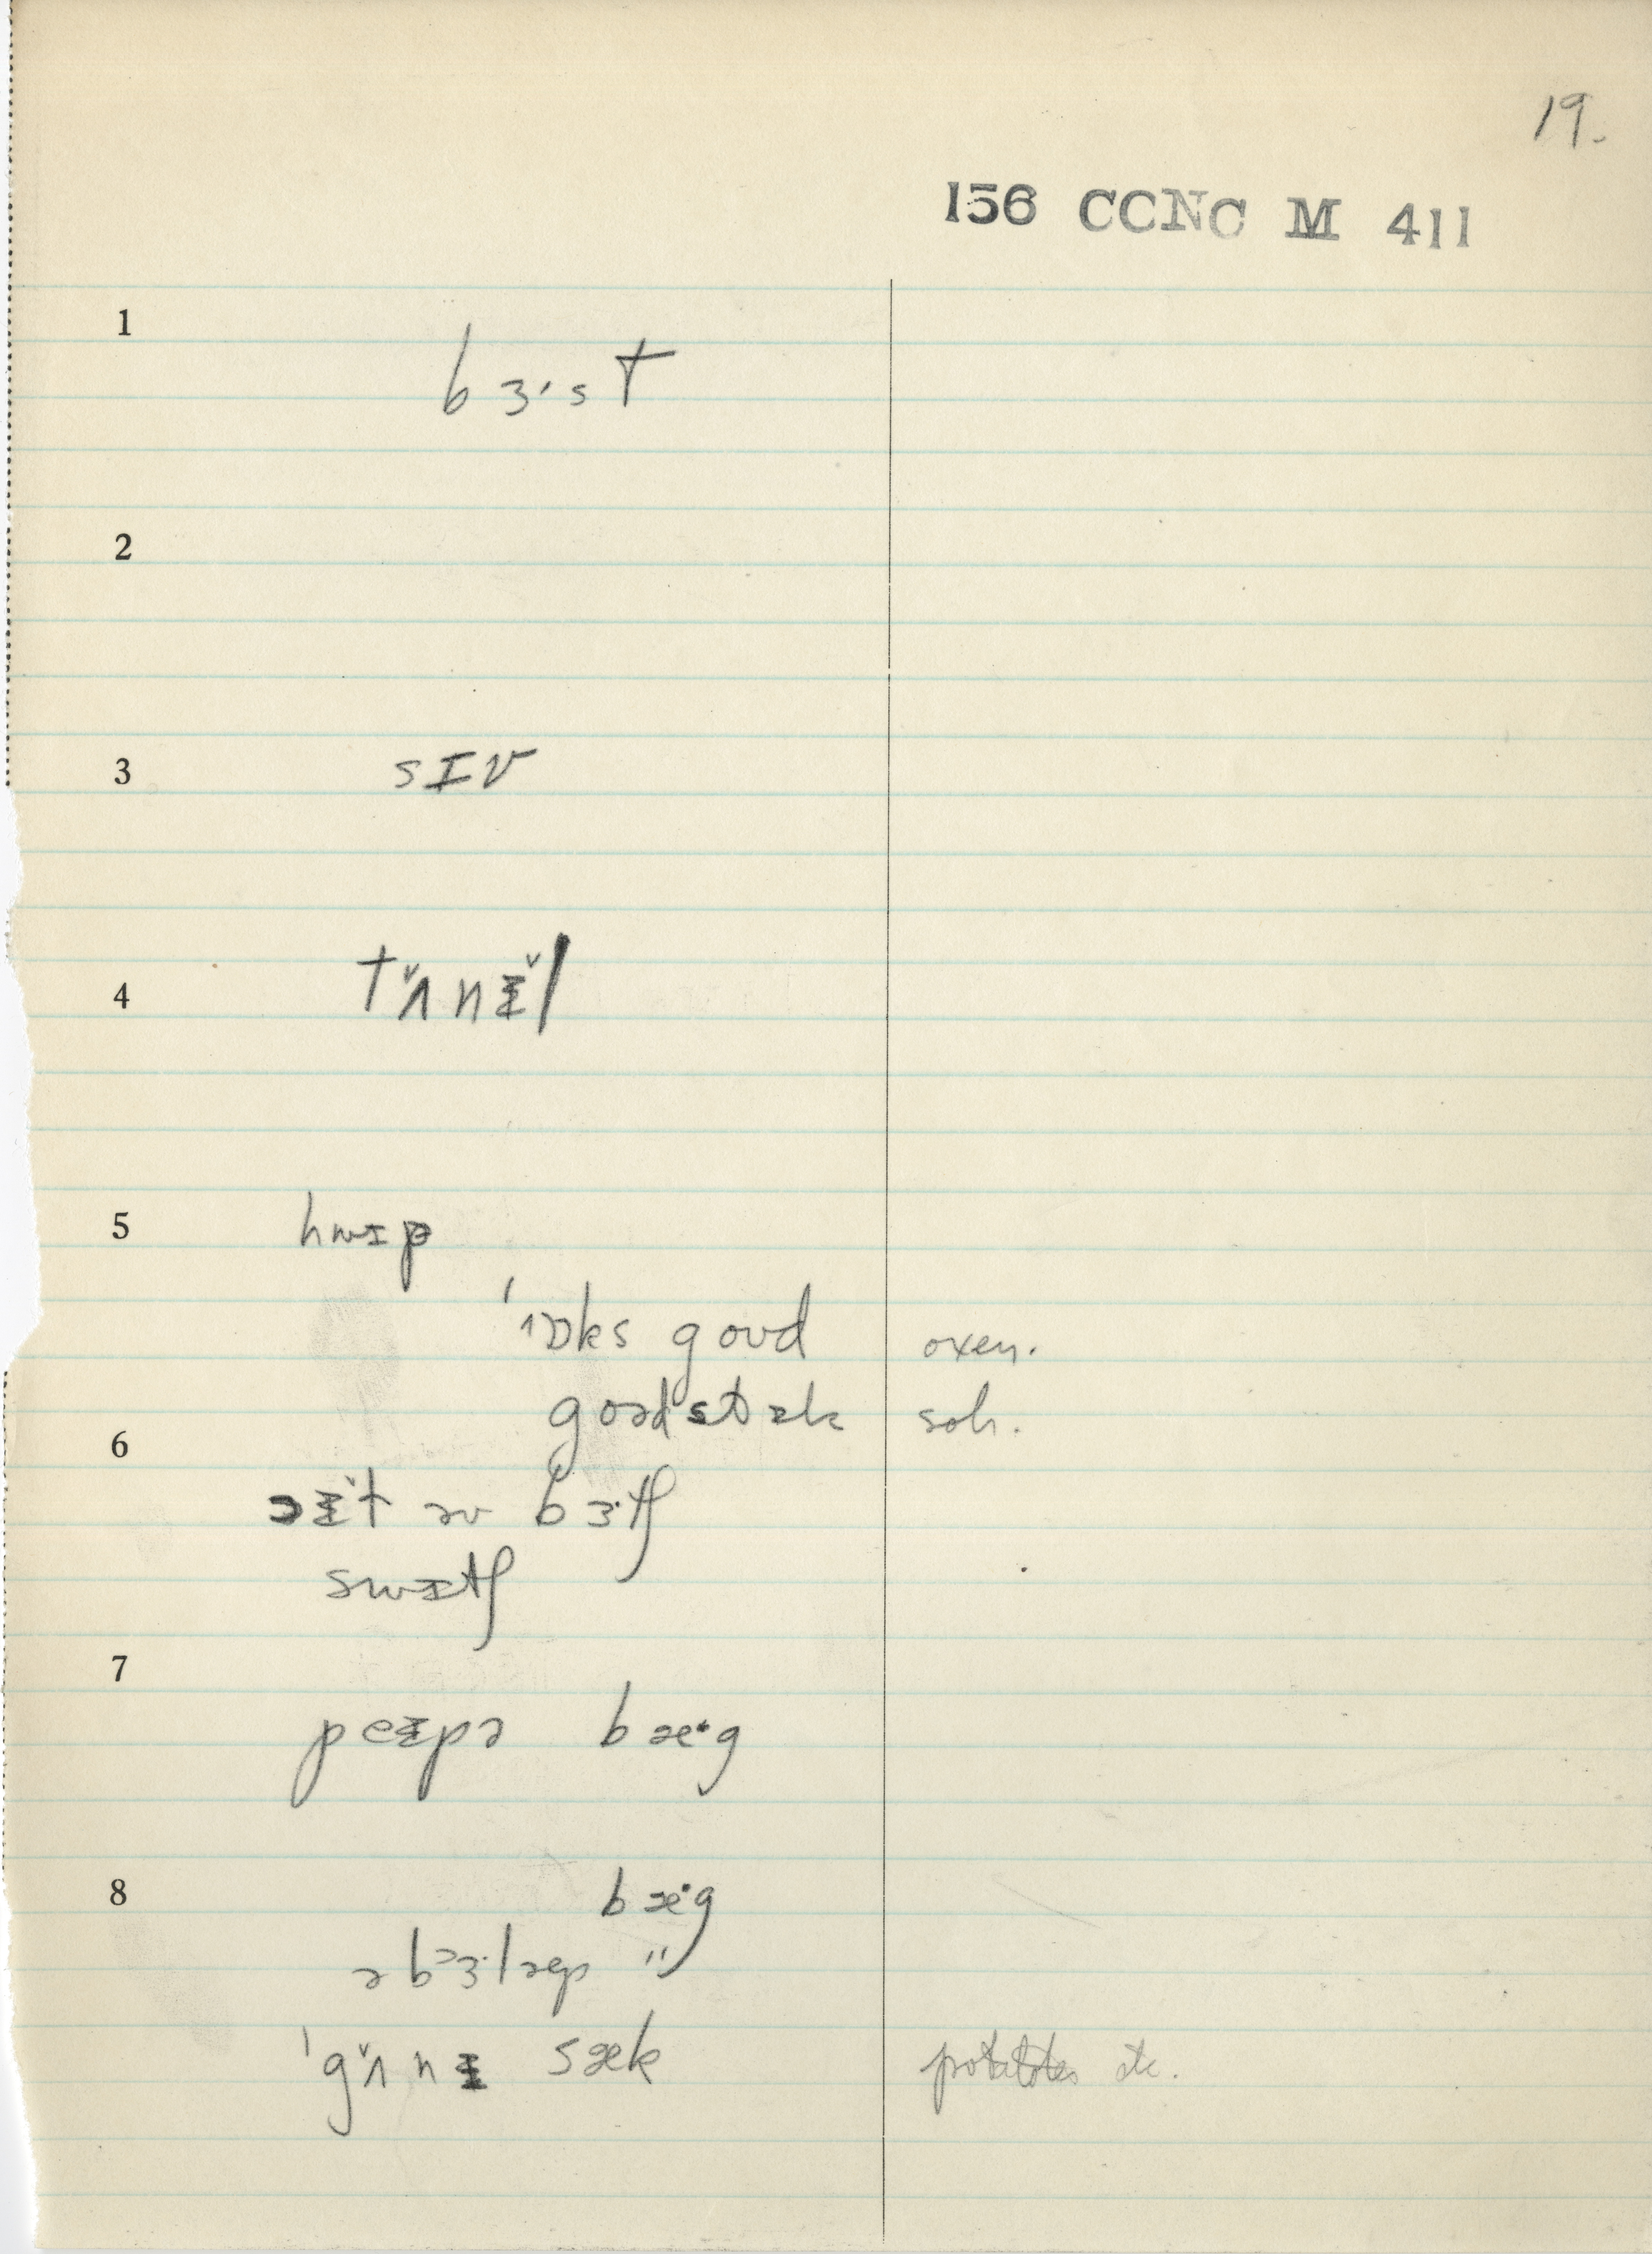 19.
156 CCNC M 411
1
bɜ·st
2
3
sɪv
4
tʌ̌nɪ̌l
5
hwɪp
goʊd oxen.
goəd stɪk sch.
6
əv bɜ·tʃ
swɪtʃ
7
peɪpə bæ·g
8
bæ·g
"
'gʌ̌nɪ sæk potatoes etc.